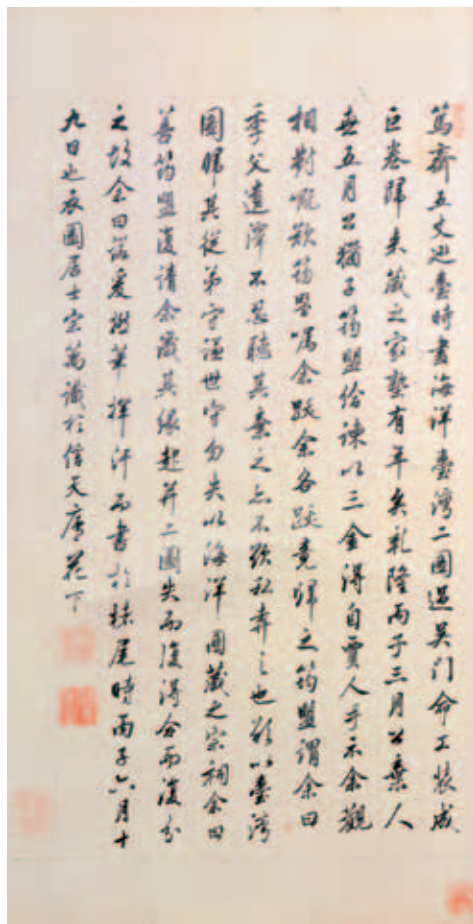 篤齋五丈巡臺時畫海洋臺灣二圖過吳门命工裝成
巨卷歸来藏之家塾有年矣乾隆丙子三月公棄人
世五月公猶子筠盟給諫以三金得自賈人手示余觀
相對嘅歎筠盟囑余跋余各跋竟歸之筠盟謂余曰
季父遺澤不忍聽其棄之上不欲私弆之也欲以臺湾
圖歸其從弟守謹世守勿失以海洋圖藏之宗祠余曰
善筠盟復請余識其缘起并二圖失而復得分而復分
之故余曰諾爰拊筆揮汗而書於棶尾時丙子六月十
九日也衣園居士宗萬識於信天廬花下